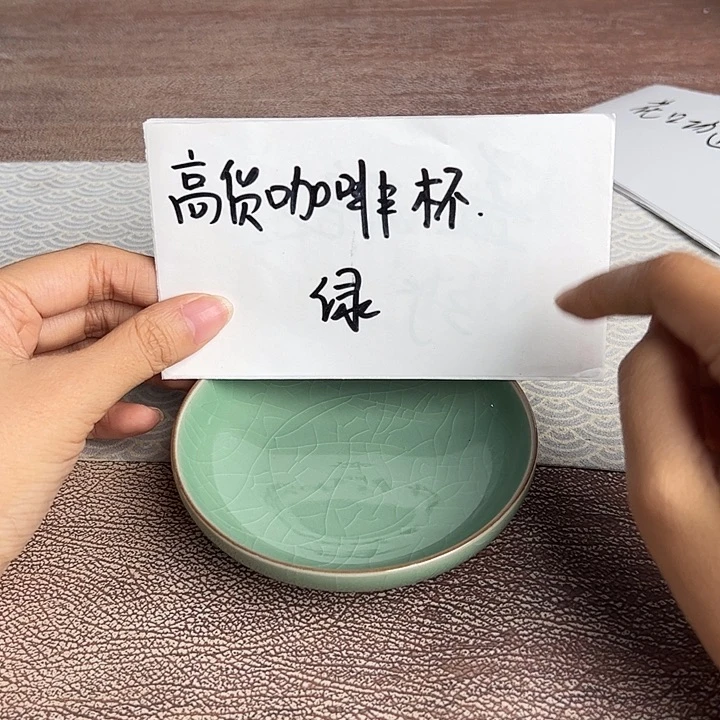 高货咖啡杯.
绿